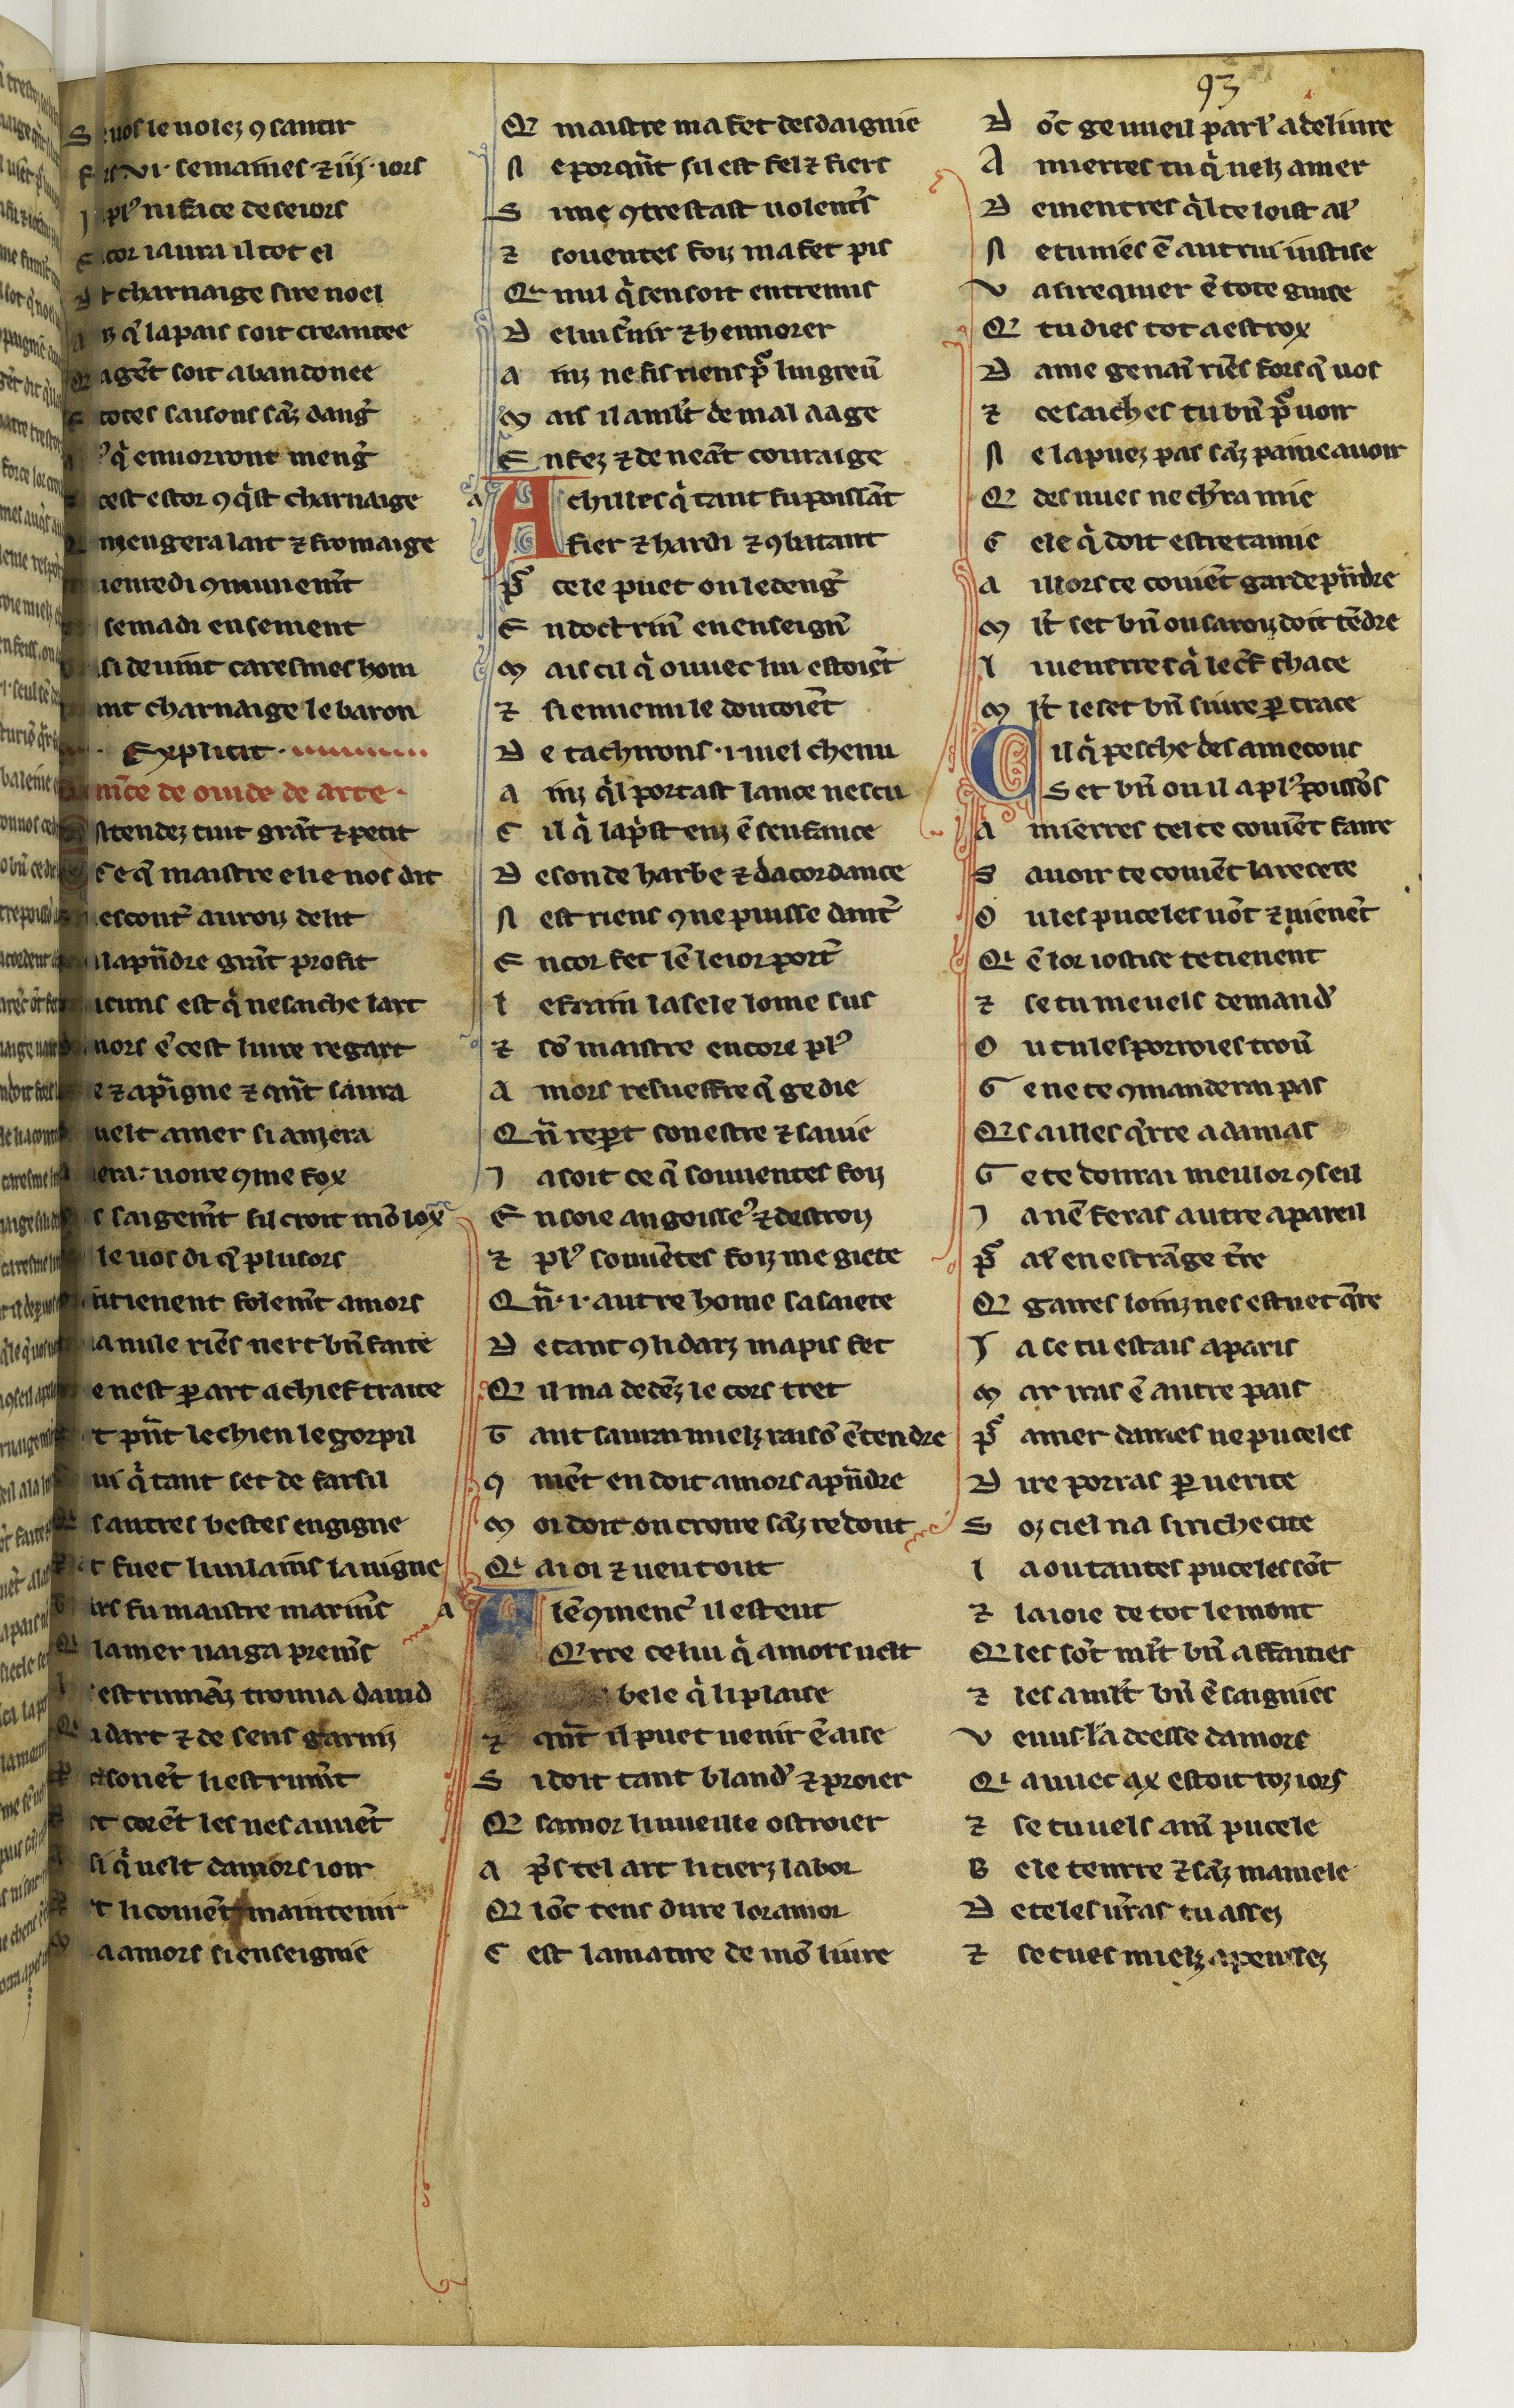 93
S uos le uolez ꝯsantir
fors .vi. semaines ⁊ iij. iors
J pl9 ni face de seiors
Encor i aura il tot el
charnaige sire noel
q̃ la pais soit creantee
agẽt soit abandonee
totes saisons sãz dang̃
q̃ en uorront meng̃
cest estor ꝯq̃st charnaige
mengera lait ⁊ fromaige
uenredi ꝯmunemt̃
semadi ensement
si deuint caresmes hom
int charnaige le baron
Explicit
mãce de ouide de arte
tendez tuit grãt ⁊ petit
ce q̃ maistre elie nos dit
escout̃ auroiz delit
lapñdre grãt profit
cuns est q̃ ne saiche lart
mors ẽ cest liure regart
e ⁊ apñigne ⁊ qñt saura
uelt amer si amera
era uoire ꝯme fox
saigemt̃ sil croit mõ lox
le uos di q̃ plusors
ñtienent folemt̃ amors
ia nule riẽs nert bñ faite
e nest ꝑ art a chief traite
t pñt le chien le gorpil
ui q̃ tant set de farsil
s autres bestes engigne
t fuet li uilains la uigne
fu maistre marinẽs
la mer naiga premĩs
estrumãz trouua dauid
dart ⁊ de sens garniz
sonẽt li estrumt̃
t corẽt les nes auuẽt
si q̃ uelt damors ioir
t li couiẽt maintenir
a amors si enseignie
Q maistre ma fet desdaignie
N e porqñt sil est fel ⁊ fiers
S i me ꝯtrestast uolentĩs
⁊ souentes foiz ma fet pis
Q nul q̃ sen soit entremis
D e lui s̃uir ⁊ hennorer
A inz ne fis riens p̃ lui greũ
M ais il a mlt̃ de mal aage
E nfez ⁊ de neãt couraige
A chilles q̃ tant fu poissãt
fier ⁊ hardi ⁊ ꝯbatant
p̃ ce le puet on ledeng̃
E n doctrinñ en enseigñ
M ais cil q̃ ouuec lui estoiẽt
⁊ si enuemi le doutoiẽt
D e tachirons .i. uiel chenu
A inz q̃l portast lance nescu
C il q̃ la p̃st enz ẽ senfance
D e son de harbe ⁊ dacordance
N est riens ꝯ ne puisse dant̃
E ncor fet lẽ le ior port̃
L e frain la sele lome sus
⁊ sõ maistre encore pl9
A mors resueffre q̃ ge die
Qñ reꝑt son estre ⁊ sa uie
J a soit ce q̃ souuentes foiz
E n soie angoisse9 ⁊ destroiz
⁊ pl9 souuẽtes foiz me giete
Qñ .i. autre home sa saiete
D e tant ꝯ li darz ma pis fet
Q il ma dedẽz le cors tret
T ant saurai mielz raisõ ẽtendre
ꝯ mẽt en doit amors apñdre
M oi doit on croire sãz redout
Q ai oi ⁊ ueu tout
A lẽ ꝯmenc̃ il esteut
Qrre celui q̃ amors uelt
bele q̃ li plaise
⁊ qñt il puet uenir ẽ aise
S i doit tant bland̃ ⁊ proier
Q samor li uueille ostroier
A p̃s tel art li tierz labor
Q lõc tens dure lor amor
C est la matire de mõ liure
D õc ge uueil parl̃ a deliure
A mierres tu q̃ uelz amer
D ementres q̃l te loist al̃
N e tu nies ẽ autrui iustise
V a si requier ẽ tote guise
Q tu dies tot a estrox
D ame ge nai riẽs fors q̃ uos
⁊ ce saiches tu bñ p̃ uoir
N e la puez pas sãz paine auoir
Q des nues ne ch̃ra mie
C ele q̃ doit estre tamie
A illors te couiẽt garde pñdre
M lt̃ set bñ ou sa roiz doit tẽdre
L i uenerres q̃ le cẽf chace
M lt̃ le set bñ siure ꝑ trace
C il q̃ pesche des ameçons
Set bñ ou il a pl9 poissõs
A mierres tel te couiẽt faire
S auoir te couiẽt la recete
O u les puceles uõt ⁊ uienẽt
Q ẽ lor iostise te tienent
⁊ se tu me uels demand̃
O u tu les porroies trouũ
G e ne te ꝯmanderai pas
Q sailles q̃rre a damas
G e te donrai meillor ꝯseil
J a nẽ feras autre apareil
p̃ al̃ en estrãge t̃re
Q gaires loinz nes estuet q̃re
J a se tu estais a paris
M ar iras ẽ autre pais
p̃ amer dames ne puceles
D ire porras ꝑ uerite
S oz ciel na si riche cite
L a ou tantes puceles sõt
⁊ la ioie de tot le mont
Q les sõt mlt̃ bñ affaities
⁊ les a mlt̃ bñ ẽsaignies
V enus la deesse damors
Q auuec ax estoit toz iors
⁊ se tu uels am̃ pucele
B ele tenrre ⁊ sãz mamele
D e teles ũras tu assez
⁊ se tu es mielz apensez